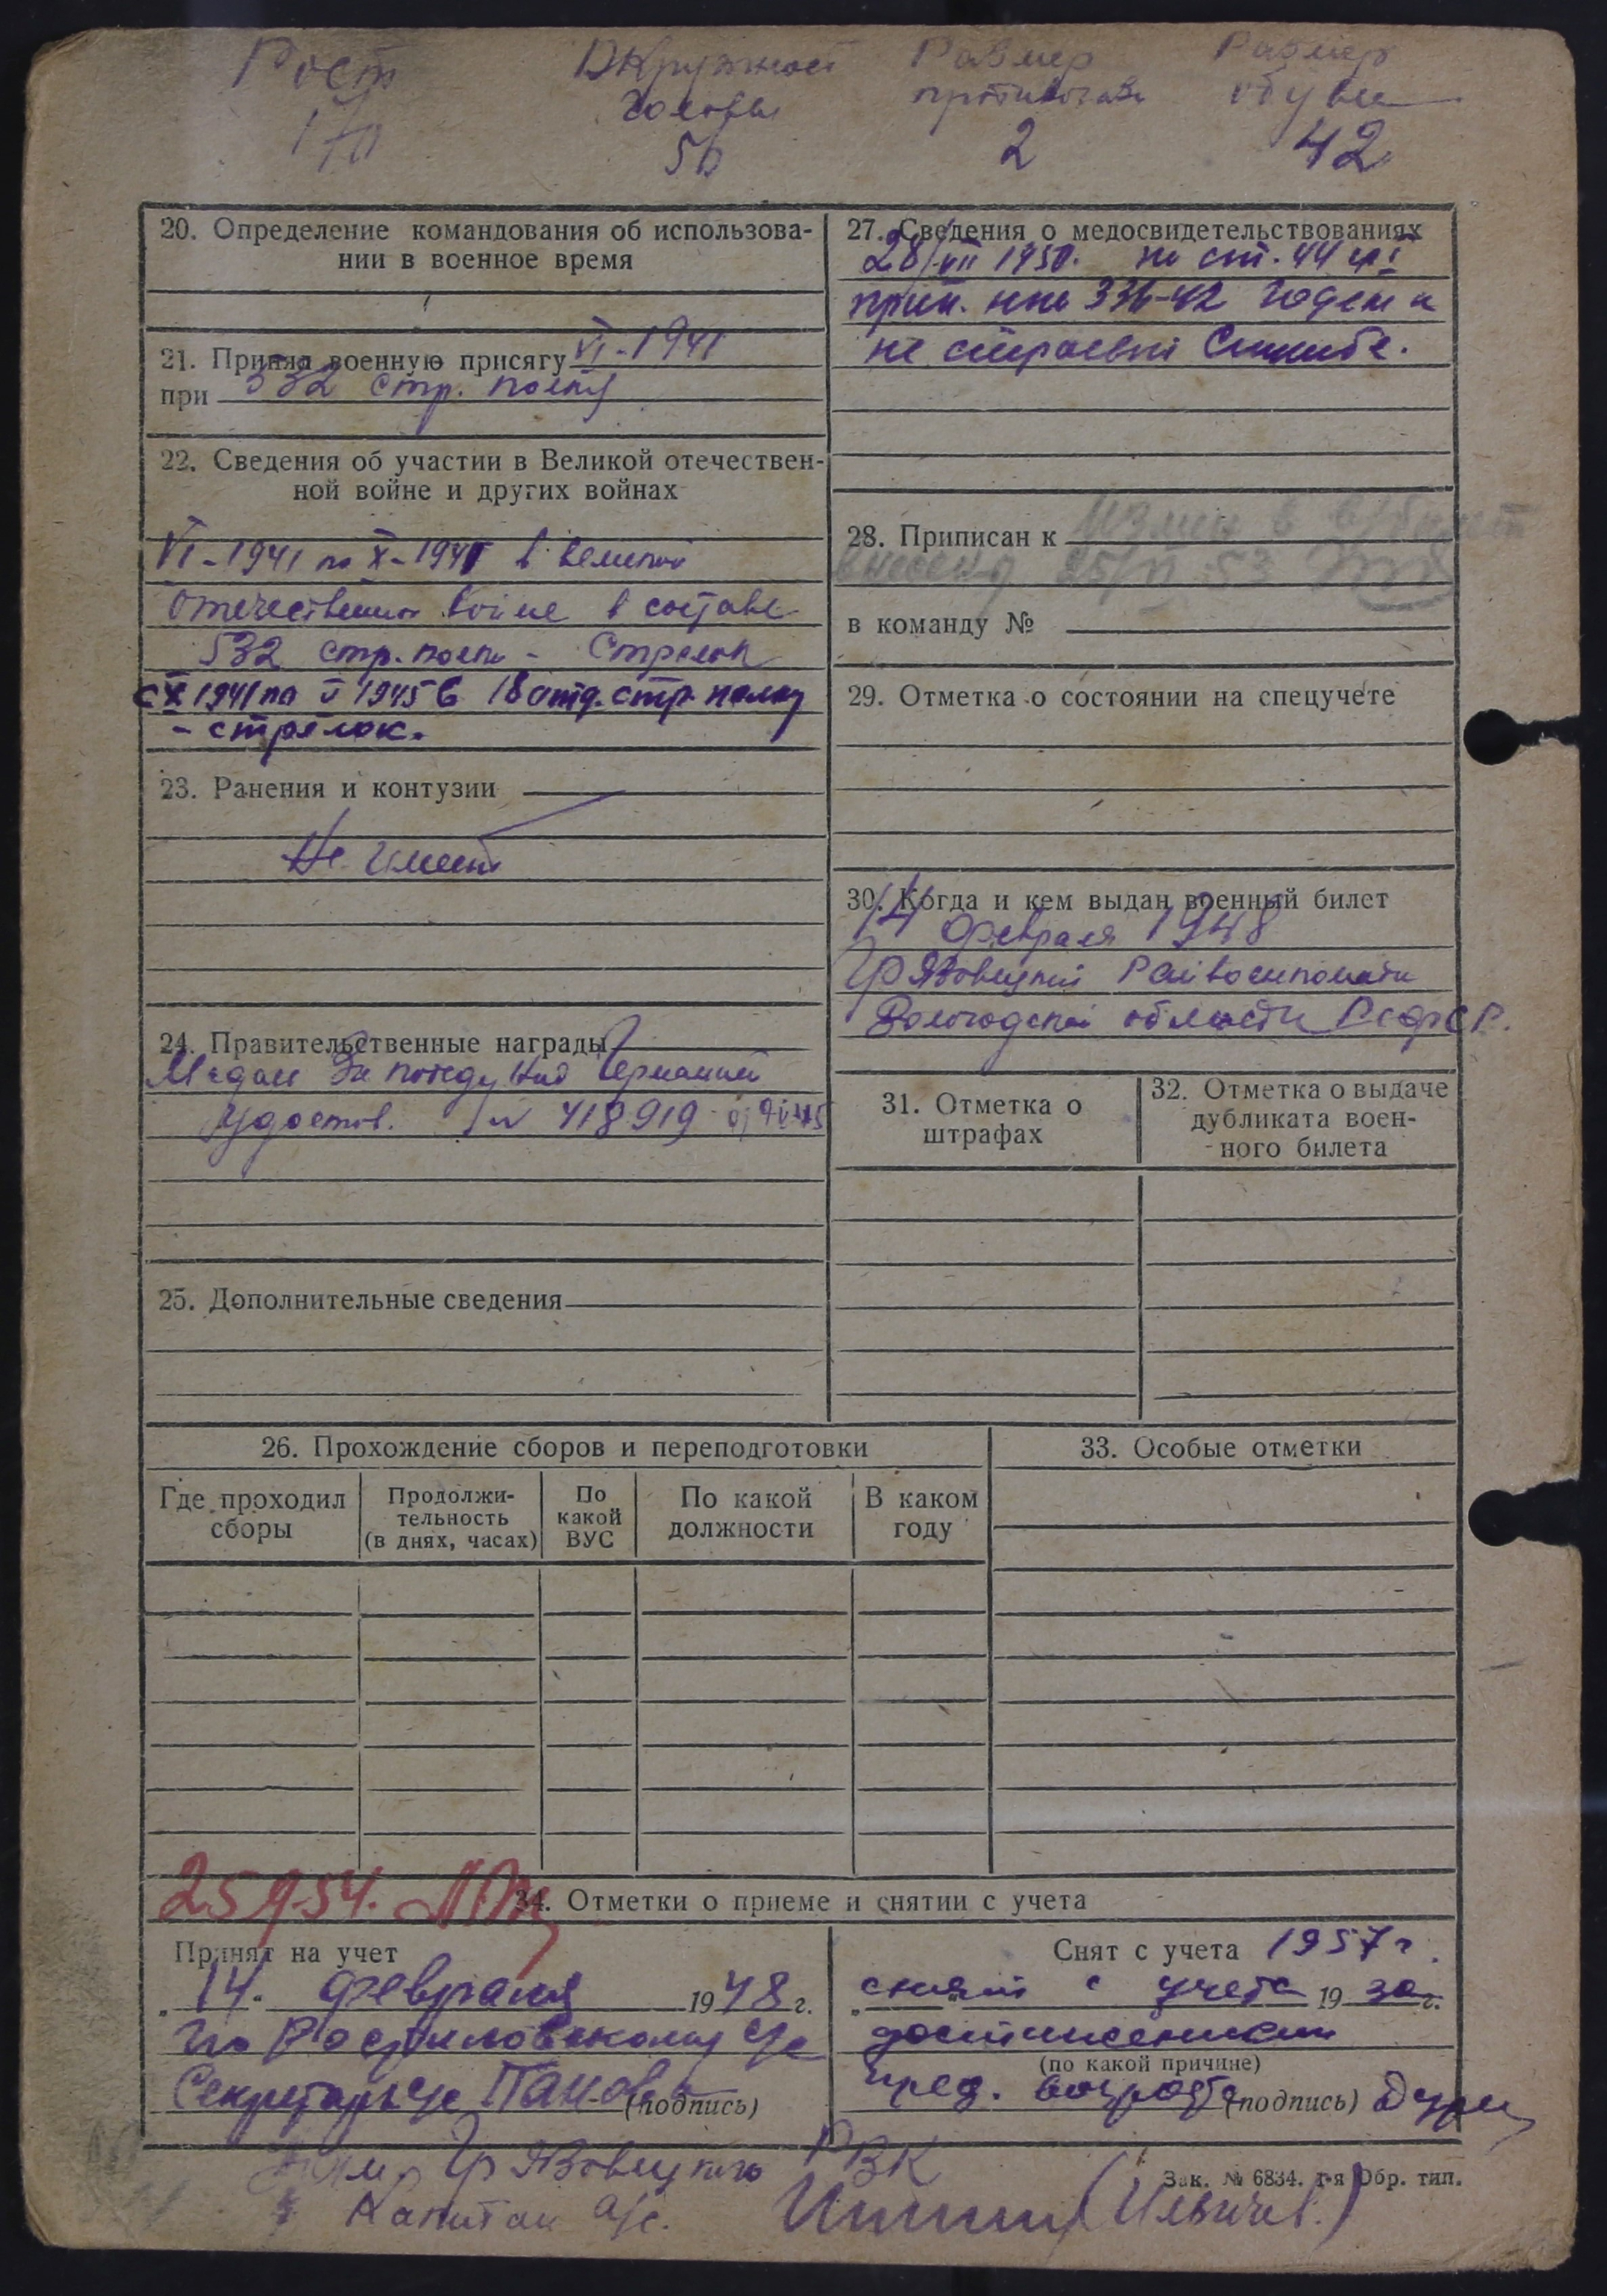 Рост Окружност Размер Размер
головы противогаза обуви
170 56 2 42
20. Определение командования об использова-
нии в военное время
21. Принял военную присягу VI-1941
при 532 стр. полку
22. Сведения об участии в Великой отечествен-
ной войне и других войнах
VI-1941 по X-1941 в великой
отечественной войне в составе
532 стр. полка - Стрелок
с X 1941 по V 1945 в 18 отд. стр. полку
- стрелок.
23. Ранения и контузии
Не имеет
24. Правительственные награды
Медаль За победу над Германией
Удостов. № 418919
25. Дополнительные сведения
27. Сведения о медосвидетельствованиях
28/VII 1950. по ст. 44 гр I
прик. нко 336-42 годен к
не строевой службе.
28. Приписан к
внесены 25/ 53
в команду №
29. Отметка о состоянии на спецучете
30. Когда и кем выдан военный билет
14 февраля 1948
Грязовецкий Райвоенкомат
Вологодской области РСФСР.
31. Отметка о
штрафах
32. Отметка о выдаче
дубликата воен-
ного билета
26. Прохождение сборов и переподготовки
Где проходил
сборы
Продолжи-
тельность
(в днях, часах)
По
какой
ВУС
По какой
должности
В каком
году
33. Особые отметки
34. Отметки о приеме и снятии с учета
Принят на учет
„ 14. февраля 1948 г.
по Ростиловскому с/с
Секретарь с/с Панова (подпись)
Снят с учета 1957 г.
снят с учета 19 за г.
достижением
(по какой причине)
пред. возраста (подпись)
Грязовецкого РВК
Капитан а/с. (Ильичев.)
Зак. № 6834. 1-я Обр. тип.